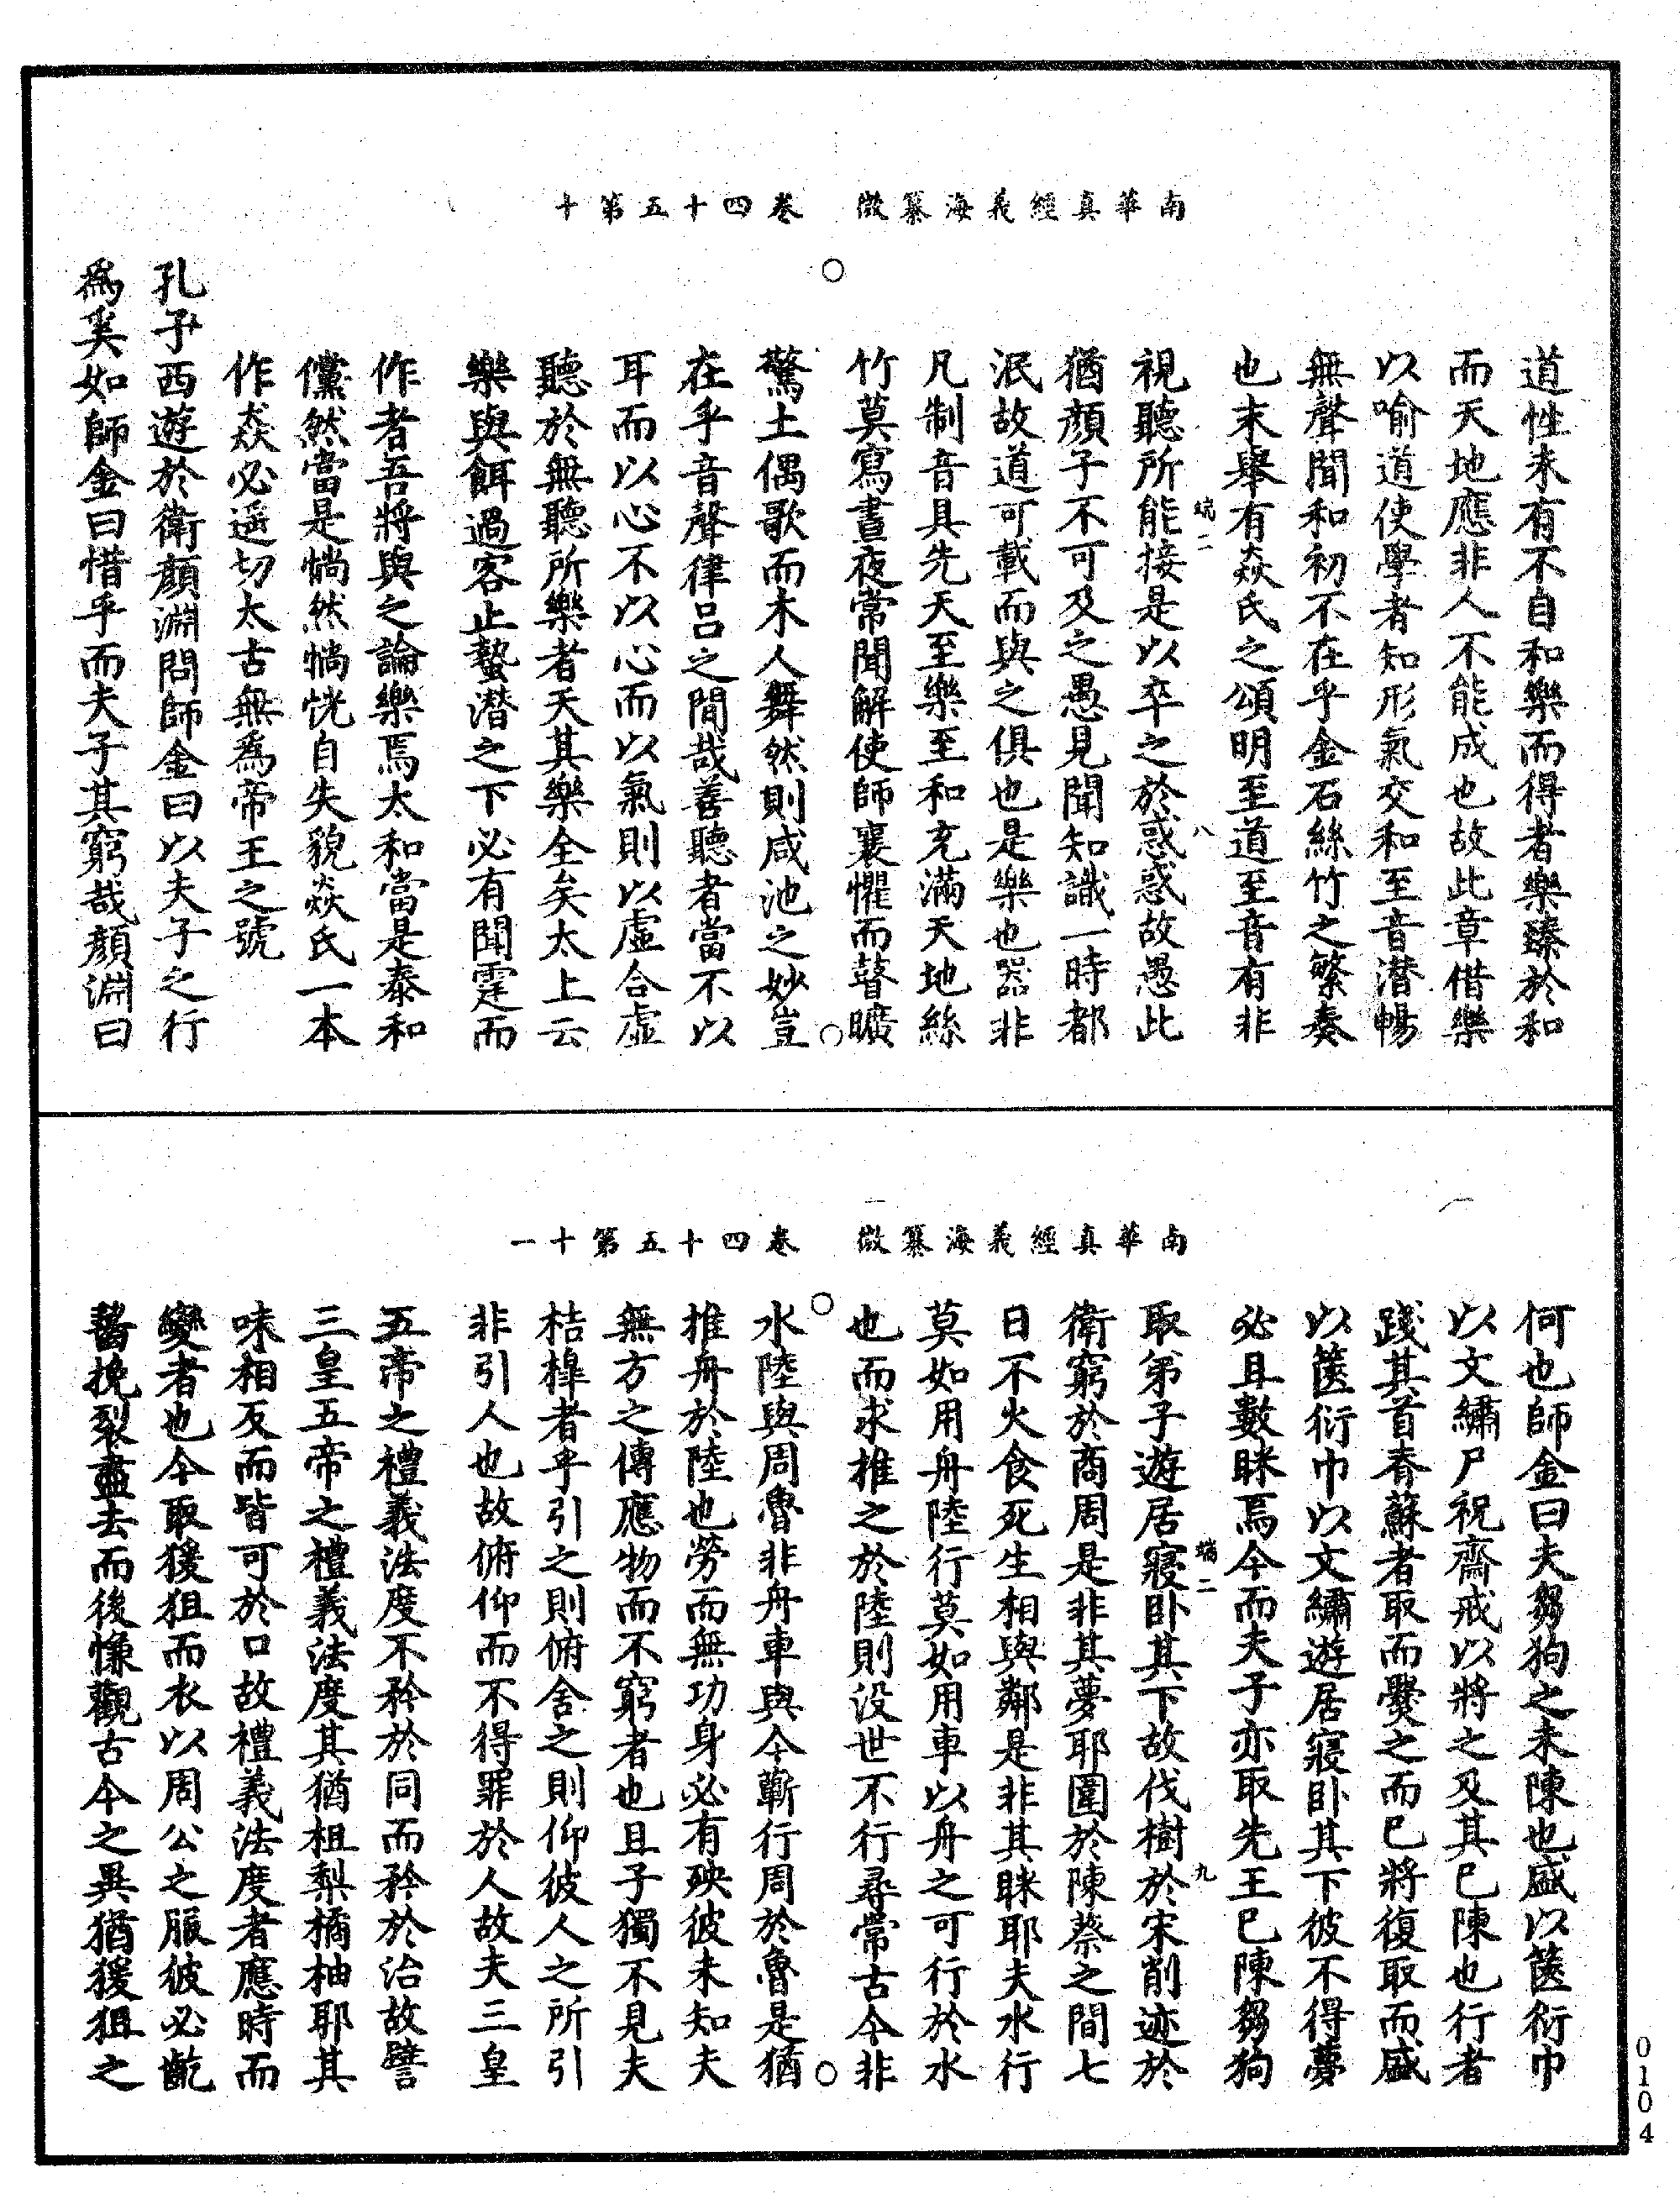 南華真經義海纂微　卷四十五第十
道性未有不自和樂而得者樂臻於和
而天地應非人不能成也故此章借樂
以喻道使學者知形氣交和至音潛暢
無聲聞和初不在乎金石絲竹之繁奏
也末舉有焱氏之頌明至道至音有非
視聽所能接是以卒之於惑惑故愚此
端二
八
猶顏子不可及之愚見聞知識一時都
泯故道可載而與之俱也是樂也器非
凡制音具先天至樂至和充滿天地絲
竹莫寫晝夜常聞解使師襄懼而瞽曠
驚土偶歌而木人舞然則咸池之妙豈
在乎音聲律呂之間哉善聽者當不以
耳而以心不以心而以氣則以虛合虛
聽於無聽所樂者天其樂全矣太上云
樂與餌過客止蟄潛之下必有聞霆而
作者吾將與之論樂焉太和當是泰和
儻然當是惝然惝恍自失貌焱氏一本
作猋必遥切太古無為帝王之號
孔子西遊於衛顏淵問師金曰以夫子之行
為奚如師金曰惜乎而夫子其窮哉顏淵曰
南華真經義海纂微　卷四十五第十一
何也師金曰夫芻狗之未陳也盛以篋衍巾
以文繡尸祝齋戒以將之及其已陳也行者
踐其首脊蘇者取而爨之而已將復取而盛
以篋衍巾以文繡遊居寢臥其下彼不得夢
必且數眯焉今而夫子亦取先王已陳芻狗
取弟子遊居寢臥其下故伐樹於宋削迹於
端二
九
衛窮於商周是非其夢耶圍於陳蔡之間七
日不火食死生相與鄰是非其眯耶夫水行
莫如用舟陸行莫如用車以舟之可行於水
也而求推之於陸則没世不行尋常古今非
水陸與周魯非舟車與今蘄行周於魯是猶
推舟於陸也勞而無功身必有殃彼未知夫
無方之傳應物而不窮者也且子獨不見夫
桔槹者乎引之則俯舍之則仰彼人之所引
非引人也故俯仰而不得罪於人故夫三皇
五帝之禮義法度不矜於同而矜於治故譬
三皇五帝之禮義法度其猶柤梨橘柚耶其
味相反而皆可於口故禮義法度者應時而
變者也今取猨狙而衣以周公之服彼必齕
齧挽裂盡去而後慊觀古今之異猶猨狙之
0104